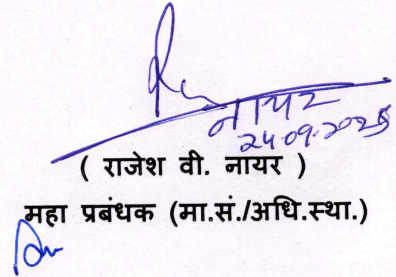 नायर
24-09-2025
( राजेश वी. नायर )
महा प्रबंधक (मा.सं./अधि.स्था.)